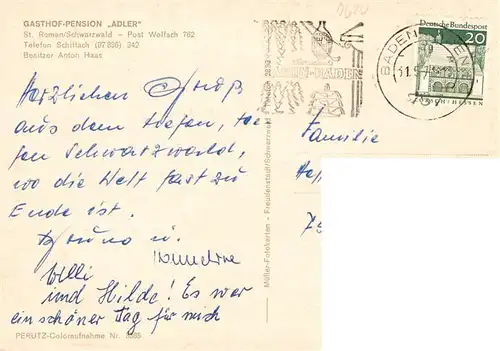 GASTHOF-PENSION „ADLER"
St. Roman/Schwarzwald - Post Wolfach 762
Telefon Schiltach (07836) 242
Besitzer Anton Haas
Herzlichen Gruß
aus dem tiefen, tie
fen Schwarzwald,
wo die Welt fast zu
Ende ist.
Bruno u.
Willi
und Hilde! Es war
ein schöner Tag für mich
PERUTZ-Coloraufnahme Nr.
Müller-Fotokarten - Freudenstadt/Schwarzwald
BADEN-BADEN
BADEN-BADEN
Deutsche Bundespost
20
LORSCH/HESSEN
Familie